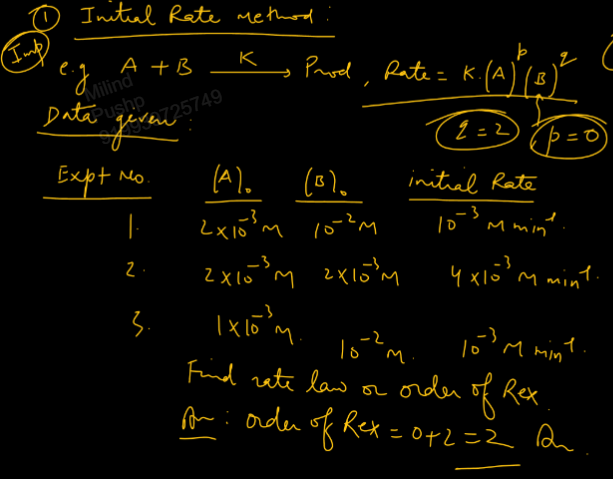 ① Initial Rate Method :
Imp
e.g A + B —K→ Prod, Rate = K.(A)^p (B)^q
Data given : q = 2 p = 0
Expt No. (A)₀ (B)₀ initial Rate
1. 2×10⁻³ M 10⁻² M 10⁻³ M min⁻¹.
2. 2×10⁻³ M 2×10⁻³ M 4×10⁻³ M min⁻¹.
3. 1×10⁻³ M. 10⁻² M. 10⁻³ M min⁻¹.
Find rate law or order of Rex
An : order of Rex = 0+2 = 2 An.
Milind
Pushp